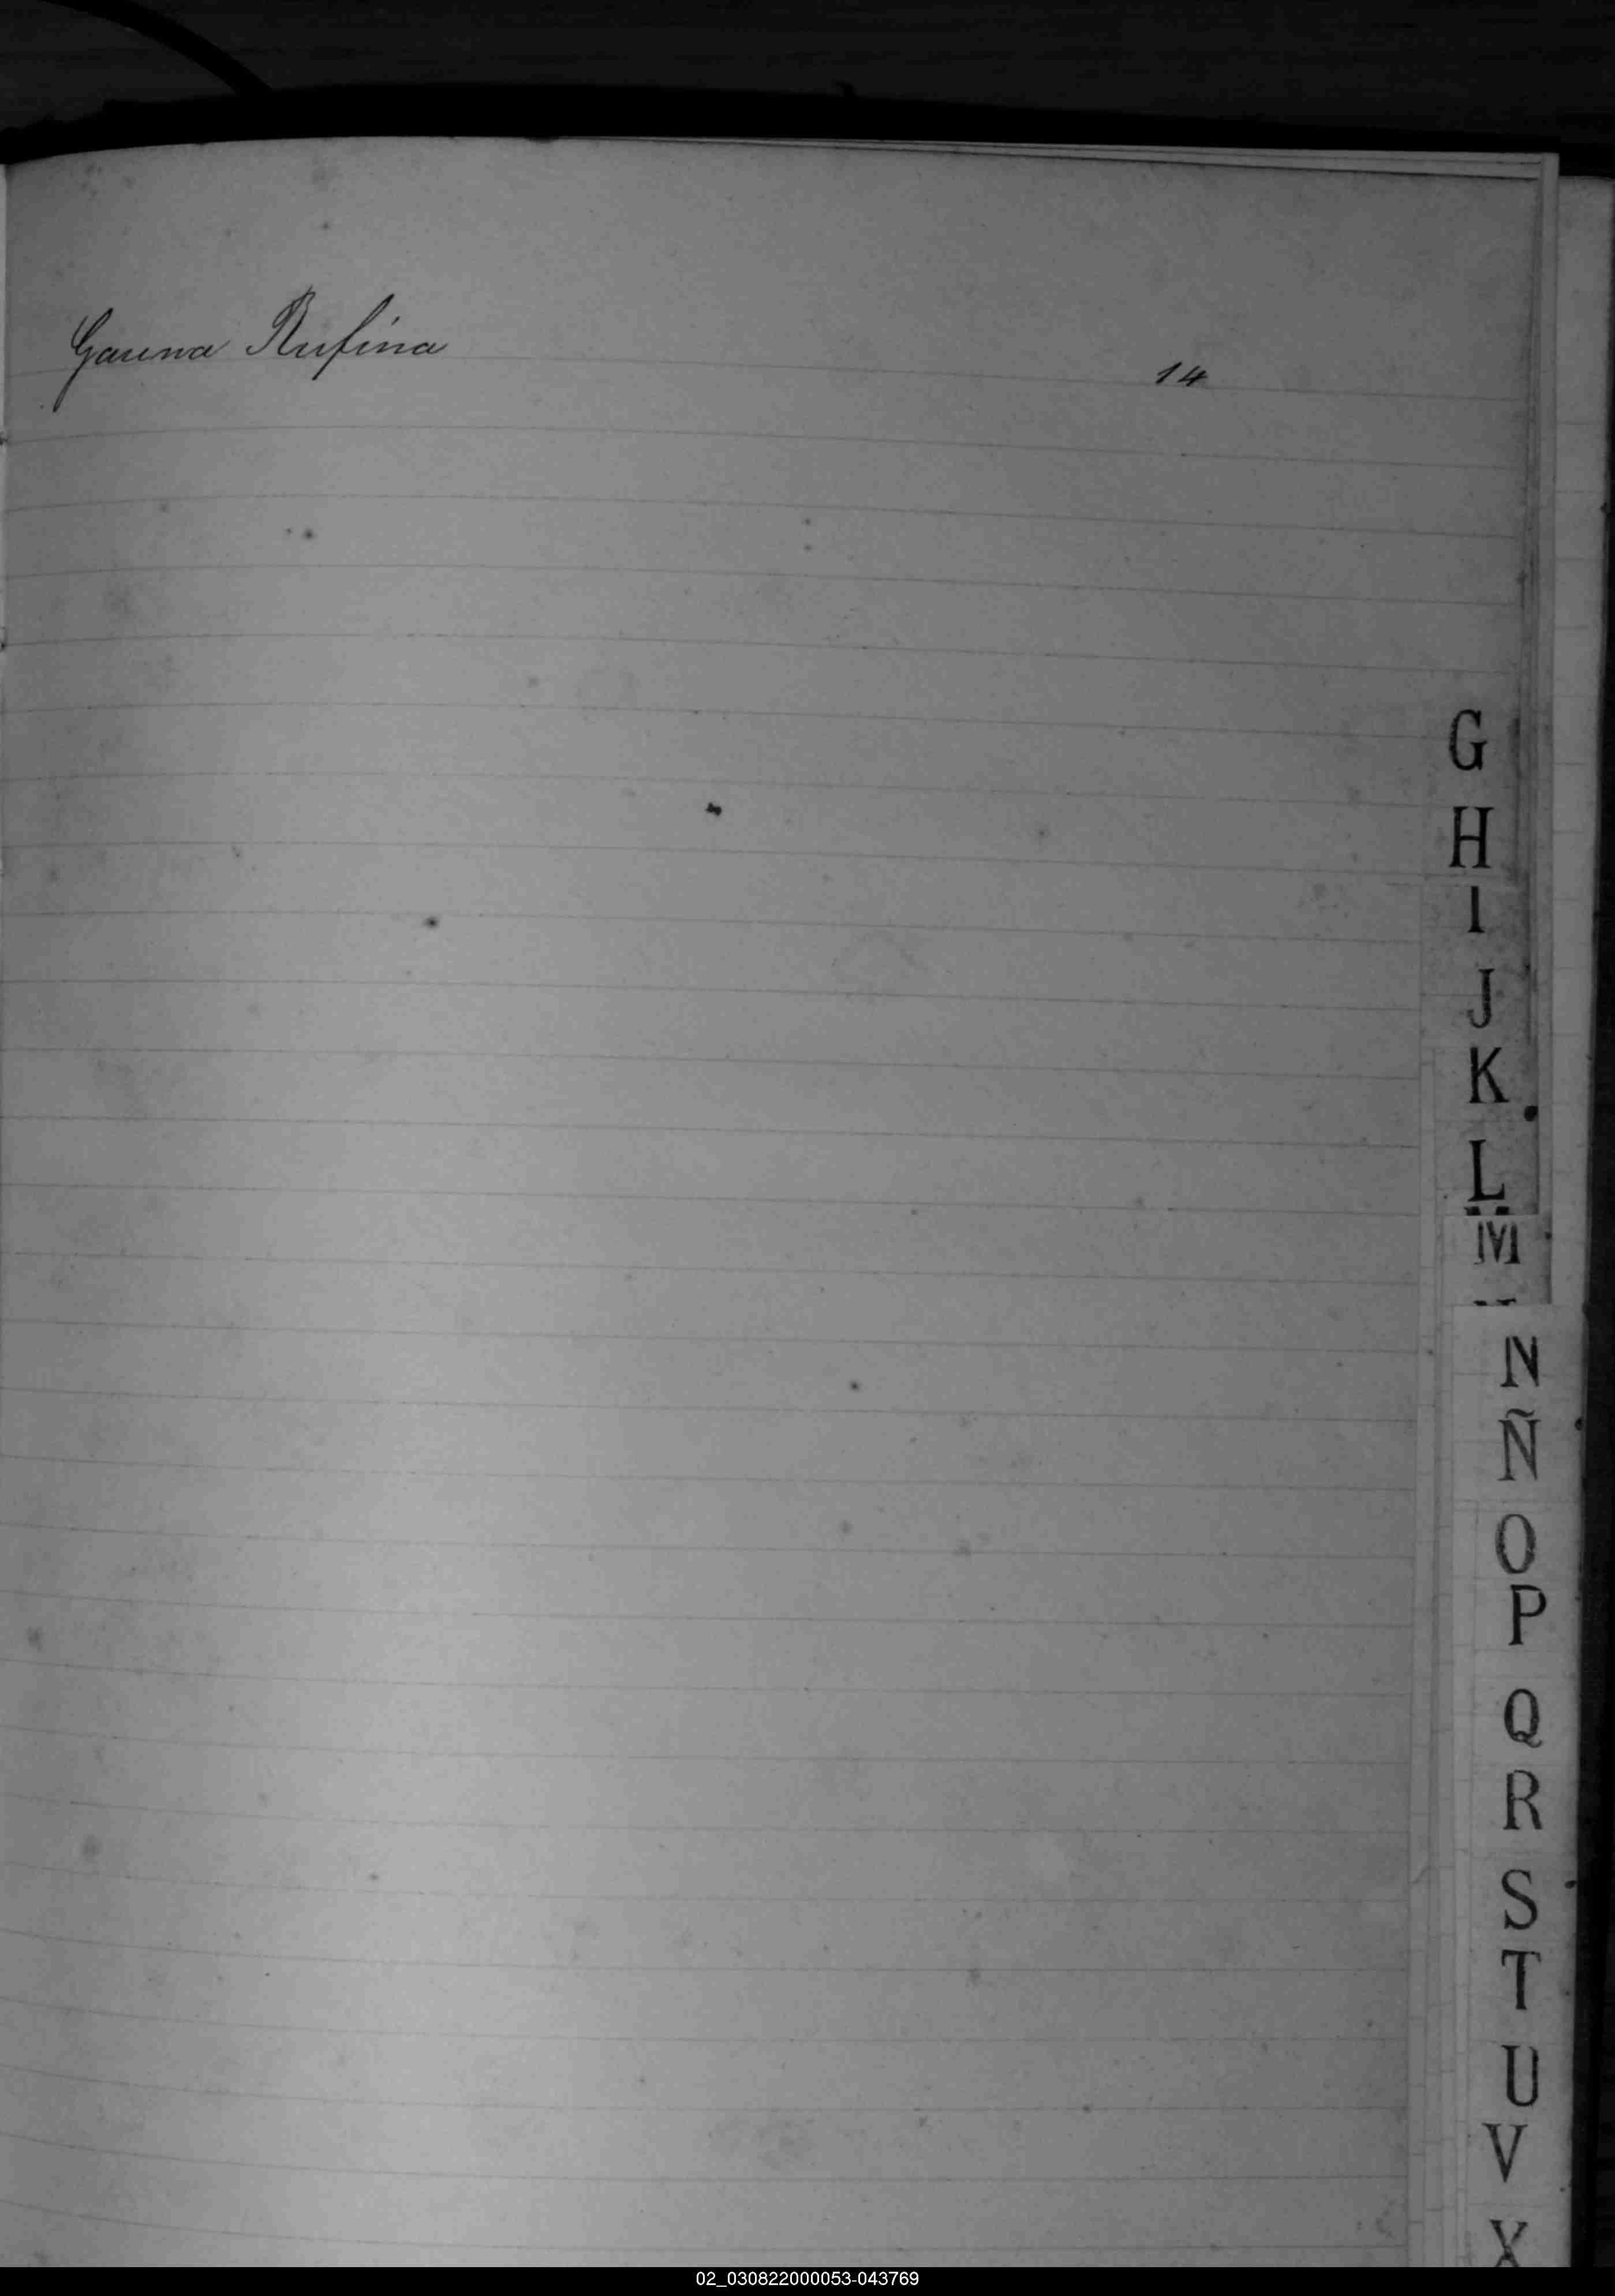 Gauna Rufina 14
G
H
I
J
K
L
M
N
Ñ
O
P
Q
R
S
T
U
V
X
02_030822000053-043769